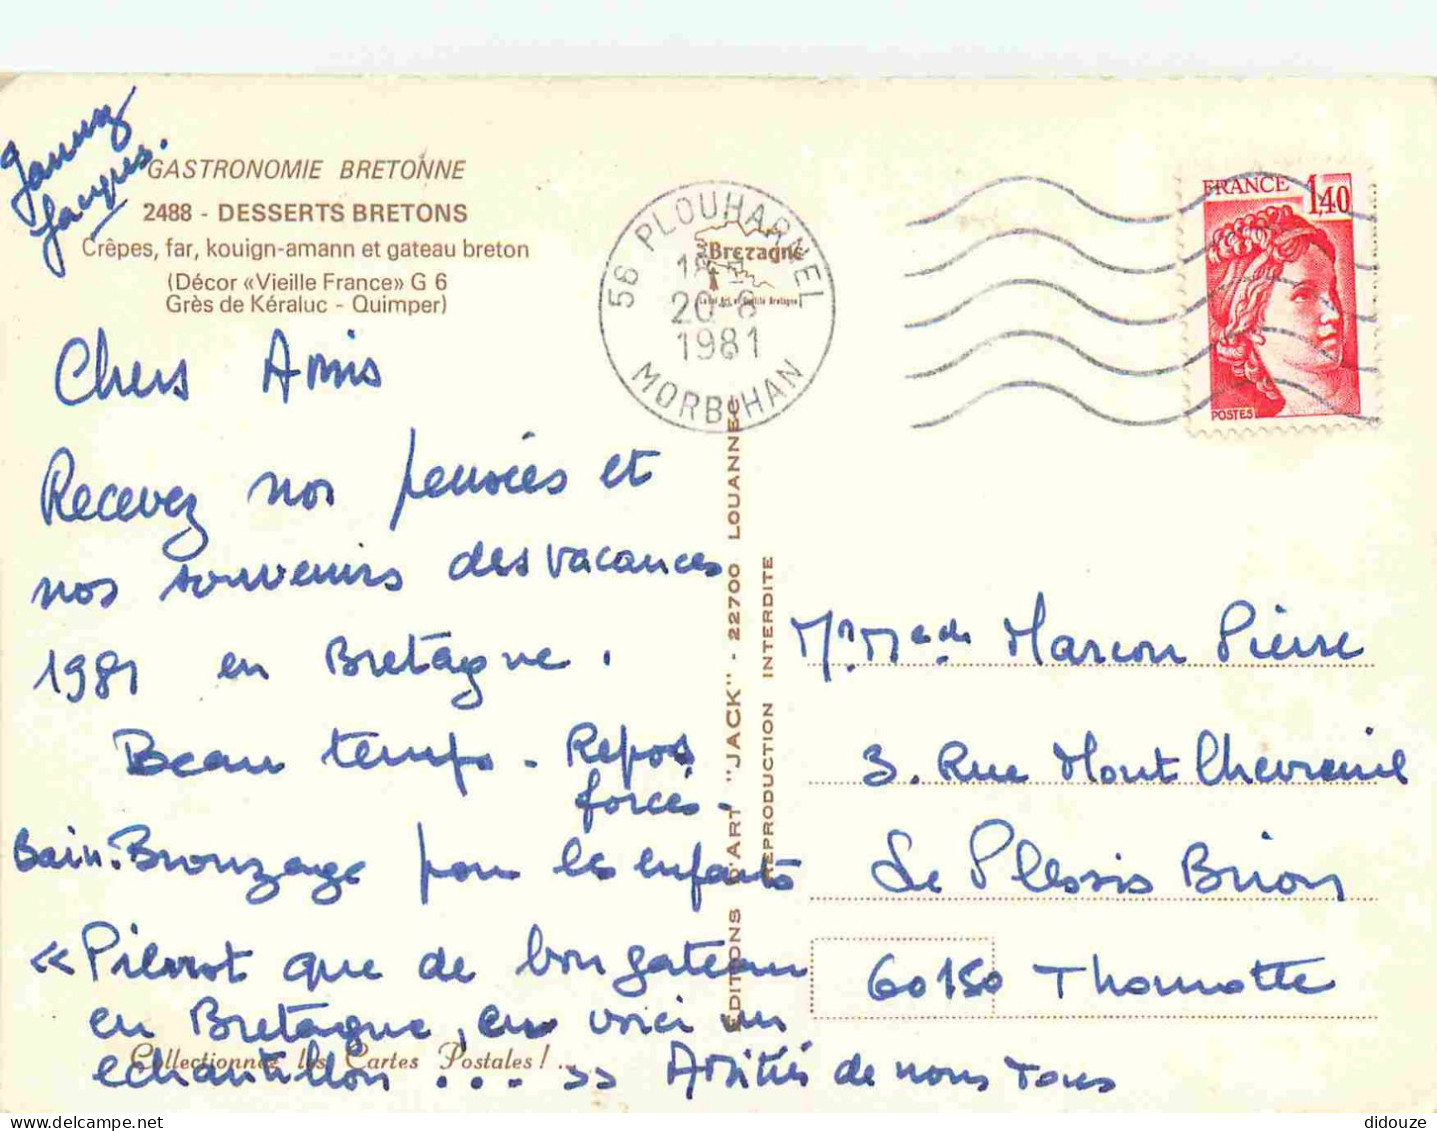 Jacques.
GASTRONOMIE BRETONNE
2488 - DESSERTS BRETONS
Crêpes, far, kouign-amann et gateau breton
(Décor «Vieille France» G 6
Grès de Kéraluc - Quimper)
Chers Amis
Recevez nos pensées et
nos souvenirs des vacances
1981 en Bretagne.
Beau temps - Repos
forcés -
Bain. Bronzage pour les enfants
«Pierrot que de bon gateau
en Bretagne, en voici un
echantillon .... »» Amitiés de nous Tous
Collectionnez les Cartes Postales!...
EDITIONS D'ART "JACK" - 22700 LOUANNEC
REPRODUCTION INTERDITE
56 PLOUHARNEL
Bretagne
20-6
1981
MORBIHAN
FRANCE 1,40
POSTES
Mr. Made Marcon Pierre
3. Rue Mont Chevreuil
Le Plessis Brion
60150 Thourotte
didouze